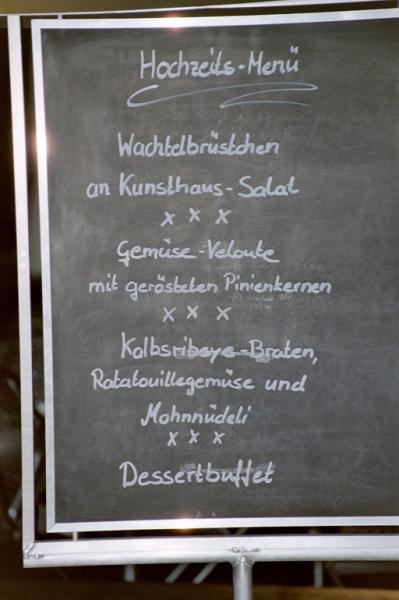 Hochzeits-Menü
Wachtelbrüstchen
an Kunsthaus-Salat
x x x
Gemüse-Veloute
mit gerösteten Pinienkernen
x x x
Kalbsribeye-Braten,
Ratatouillegemüse und
Mohnnüdeli
x x x
Dessertbuffet